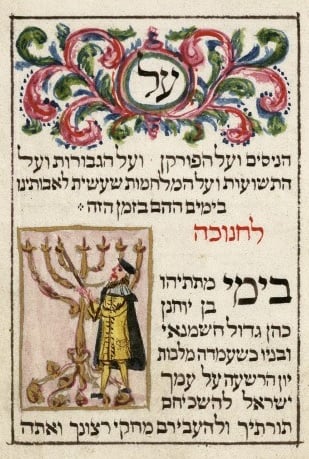 על
הניסים ועל הפורקן, ועל הגבורות ועל
התשועות ועל המלחמות שעשית לאבותינו
בימים ההם בזמן הזה
לחנוכה
בימי מתתיהו
בן יוחנן
כהן גדול חשמנאי
ובניו כשעמדה מלכות
יון הרשעה על עמך
ישראל להשכיחם
תורתיך ולהעבירם מחקי רצונך ואתה